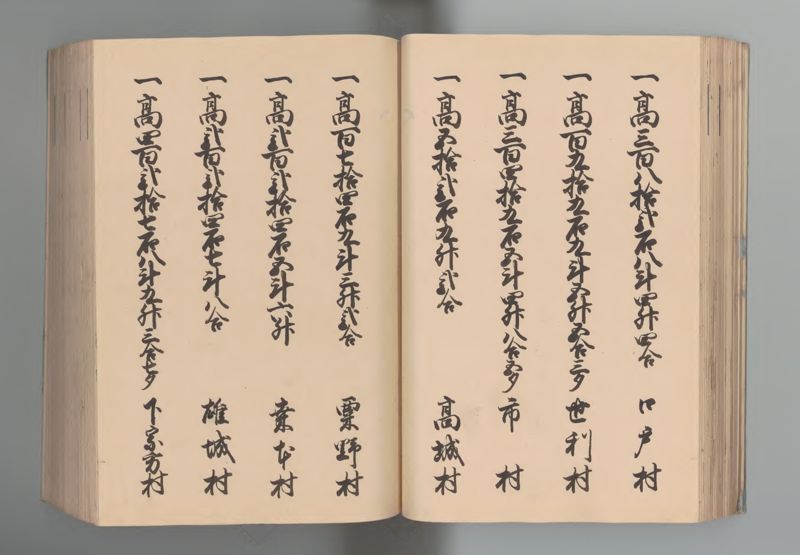 一高三百八拾弐石八斗四升四合 江戸村
一高百九拾五石九斗五升五合三夕 世利村
一高三百四拾九石五斗四升八合五夕 市村
一高五拾弐石九升弐合 高城村
一高百七拾四石九斗三升弐合 粟野村
一高弐百弐拾四石五斗六升 桒本村
一高弐百弐拾四石七斗八合 雄城村
一高四百弐拾七石八斗九升三合七夕 下宗方村